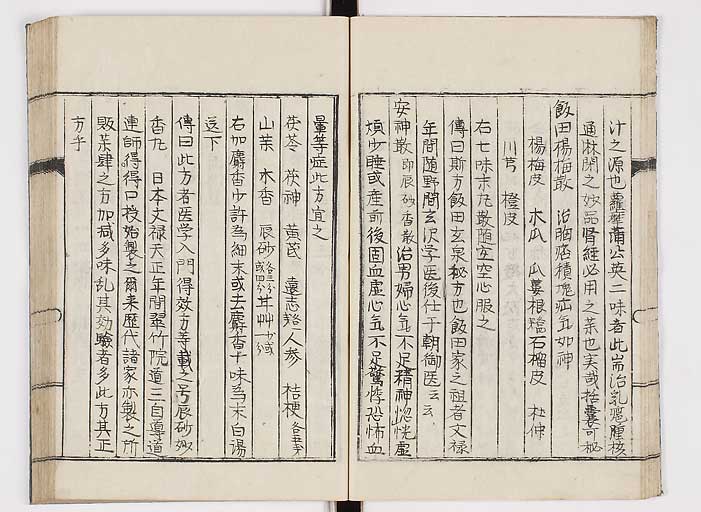 汁之源也蘿藦蒲公英二味者此耑治乳癰腫核
通淋閉之妙品腎経必用之薬也実哉括嚢可秘
飯田楊梅散 治胸痞積塊疝気如神
楊梅皮 木瓜 瓜蔞根 石榴皮 杜仲
川芎 橙皮
右七味末丸散随宜空心服之
傳曰斯方飯田玄泉秘方也飯田家之祖者文禄
年間随野間玄沢学医後仕于朝御医云云
安神散 即辰砂香散 治男婦心気不足精神惚恍虚
煩少睡或産前後因血虚心気不足驚悸恐怖血
暈等症此方宜之
茯苓 茯神 黄芪 遠志 人参 桔梗
山茱 木香 辰砂 甘艸
右加麝香少許為細末或去麝香十味為末白湯
送下
傳曰此方者医学入門得効方等載之号辰砂妙
香丸 日本文禄天正年間翠竹院道三自導道
連師得口授始製之爾来歴代諸家亦製之所
販薬肆之方加減多味乱其効験者多此方其正
方乎